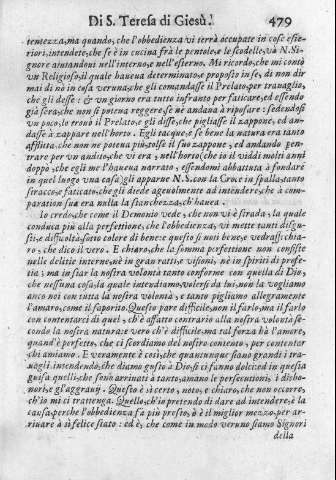 Di S. Teresa di Giesù. 479
tentezza, ma quando, che l'obbedienza vi terrà occupate in cose este-
riori, intendete, che se è in cucina frà le pentole, e le scodelle, và N. Si-
gnore aiutandoui nell'interno, e nell'esterno. Mi ricordo, che mi contò
vn Religioso, il quale haueua determinato, e proposto in se, di non dir
mai di nò in cosa veruna, che gli comandasse il Prelato, per trauaglio,
che gli desse: & vn giorno era tutto infranto per faticare, ed essendo
già sera, che non si poteua reggere, se nè andaua à riposare: sedendosi
vn poco, lo trouò il Prelato, e gli disse, che pigliasse il zappone, ed an-
dasse à zappare nell'horto. Egli tacque, e se bene la natura era tanto
afflitta, che non ne poteua più, tolse il suo zappone, ed andando pen-
trare per vn andito, che vi era, nell'horto (che io il viddi molti anni
doppo, che egli me l'haueua narrato, essendomi abbattuta à fondare
in quel luogo vna casa) gli apparue N. S. con la Croce in spalla, tanto
stracco, e faticato, che gli diede ageuolmente ad intendere, che à com-
paration sua era nulla la stanchezza, ch'haueua.
Io credo, che come il Demonio vede, che non vi è strada, la quale
conduca più alla perfettione, che l'obbedienza, vi mette tanti disgu-
sti, e difficoltà, sotto colore di bene: e questo si noti bene, e vedrassi chia-
ro, che dico il vero. E chiaro, che la somma perfettione non consiste
nelle delitie interne, nè in gran ratti, e visioni, nè in spiriti di profe-
tia; ma in star la nostra volontà tanto conforme con quella di Dio,
che nessuna cosa, la quale intendiamo, volersi da lui, non la vogliamo
anco noi con tutta la nostra volontà, e tanto pigliamo allegramente
l'amaro, come il saporito. Questo pare difficile, non il farlo, ma il farlo
con contentarci di quel, ch'è affatto contrario alla nostra volontà se-
condo la nostra natura: e vero ch'è difficile, ma tal forza hà l'amore,
quand'è perfetto, che ci scordiamo del nostro contento, per contentar
chi amiamo. E veramente è così, che quantunque siano grandi i tra-
uagli intendendo, che diamo gusto à Dio, si ci fanno dolci: ed in questa
guisa quelli, che sono arriuati à tanto, amano le persecutioni, i disho-
nori, e gl'aggraui. Questo è sì certo, noto, e chiaro, che non occorre,
ch'io mi ci trattenga. Quello, ch'io pretendo di dare ad intendere, è la
causa, perche l'obbedienza fà più presto, ò è il miglior mezzo, per ar-
riuare à sì felice stato: ed è, che come in modo veruno siamo Signori
della